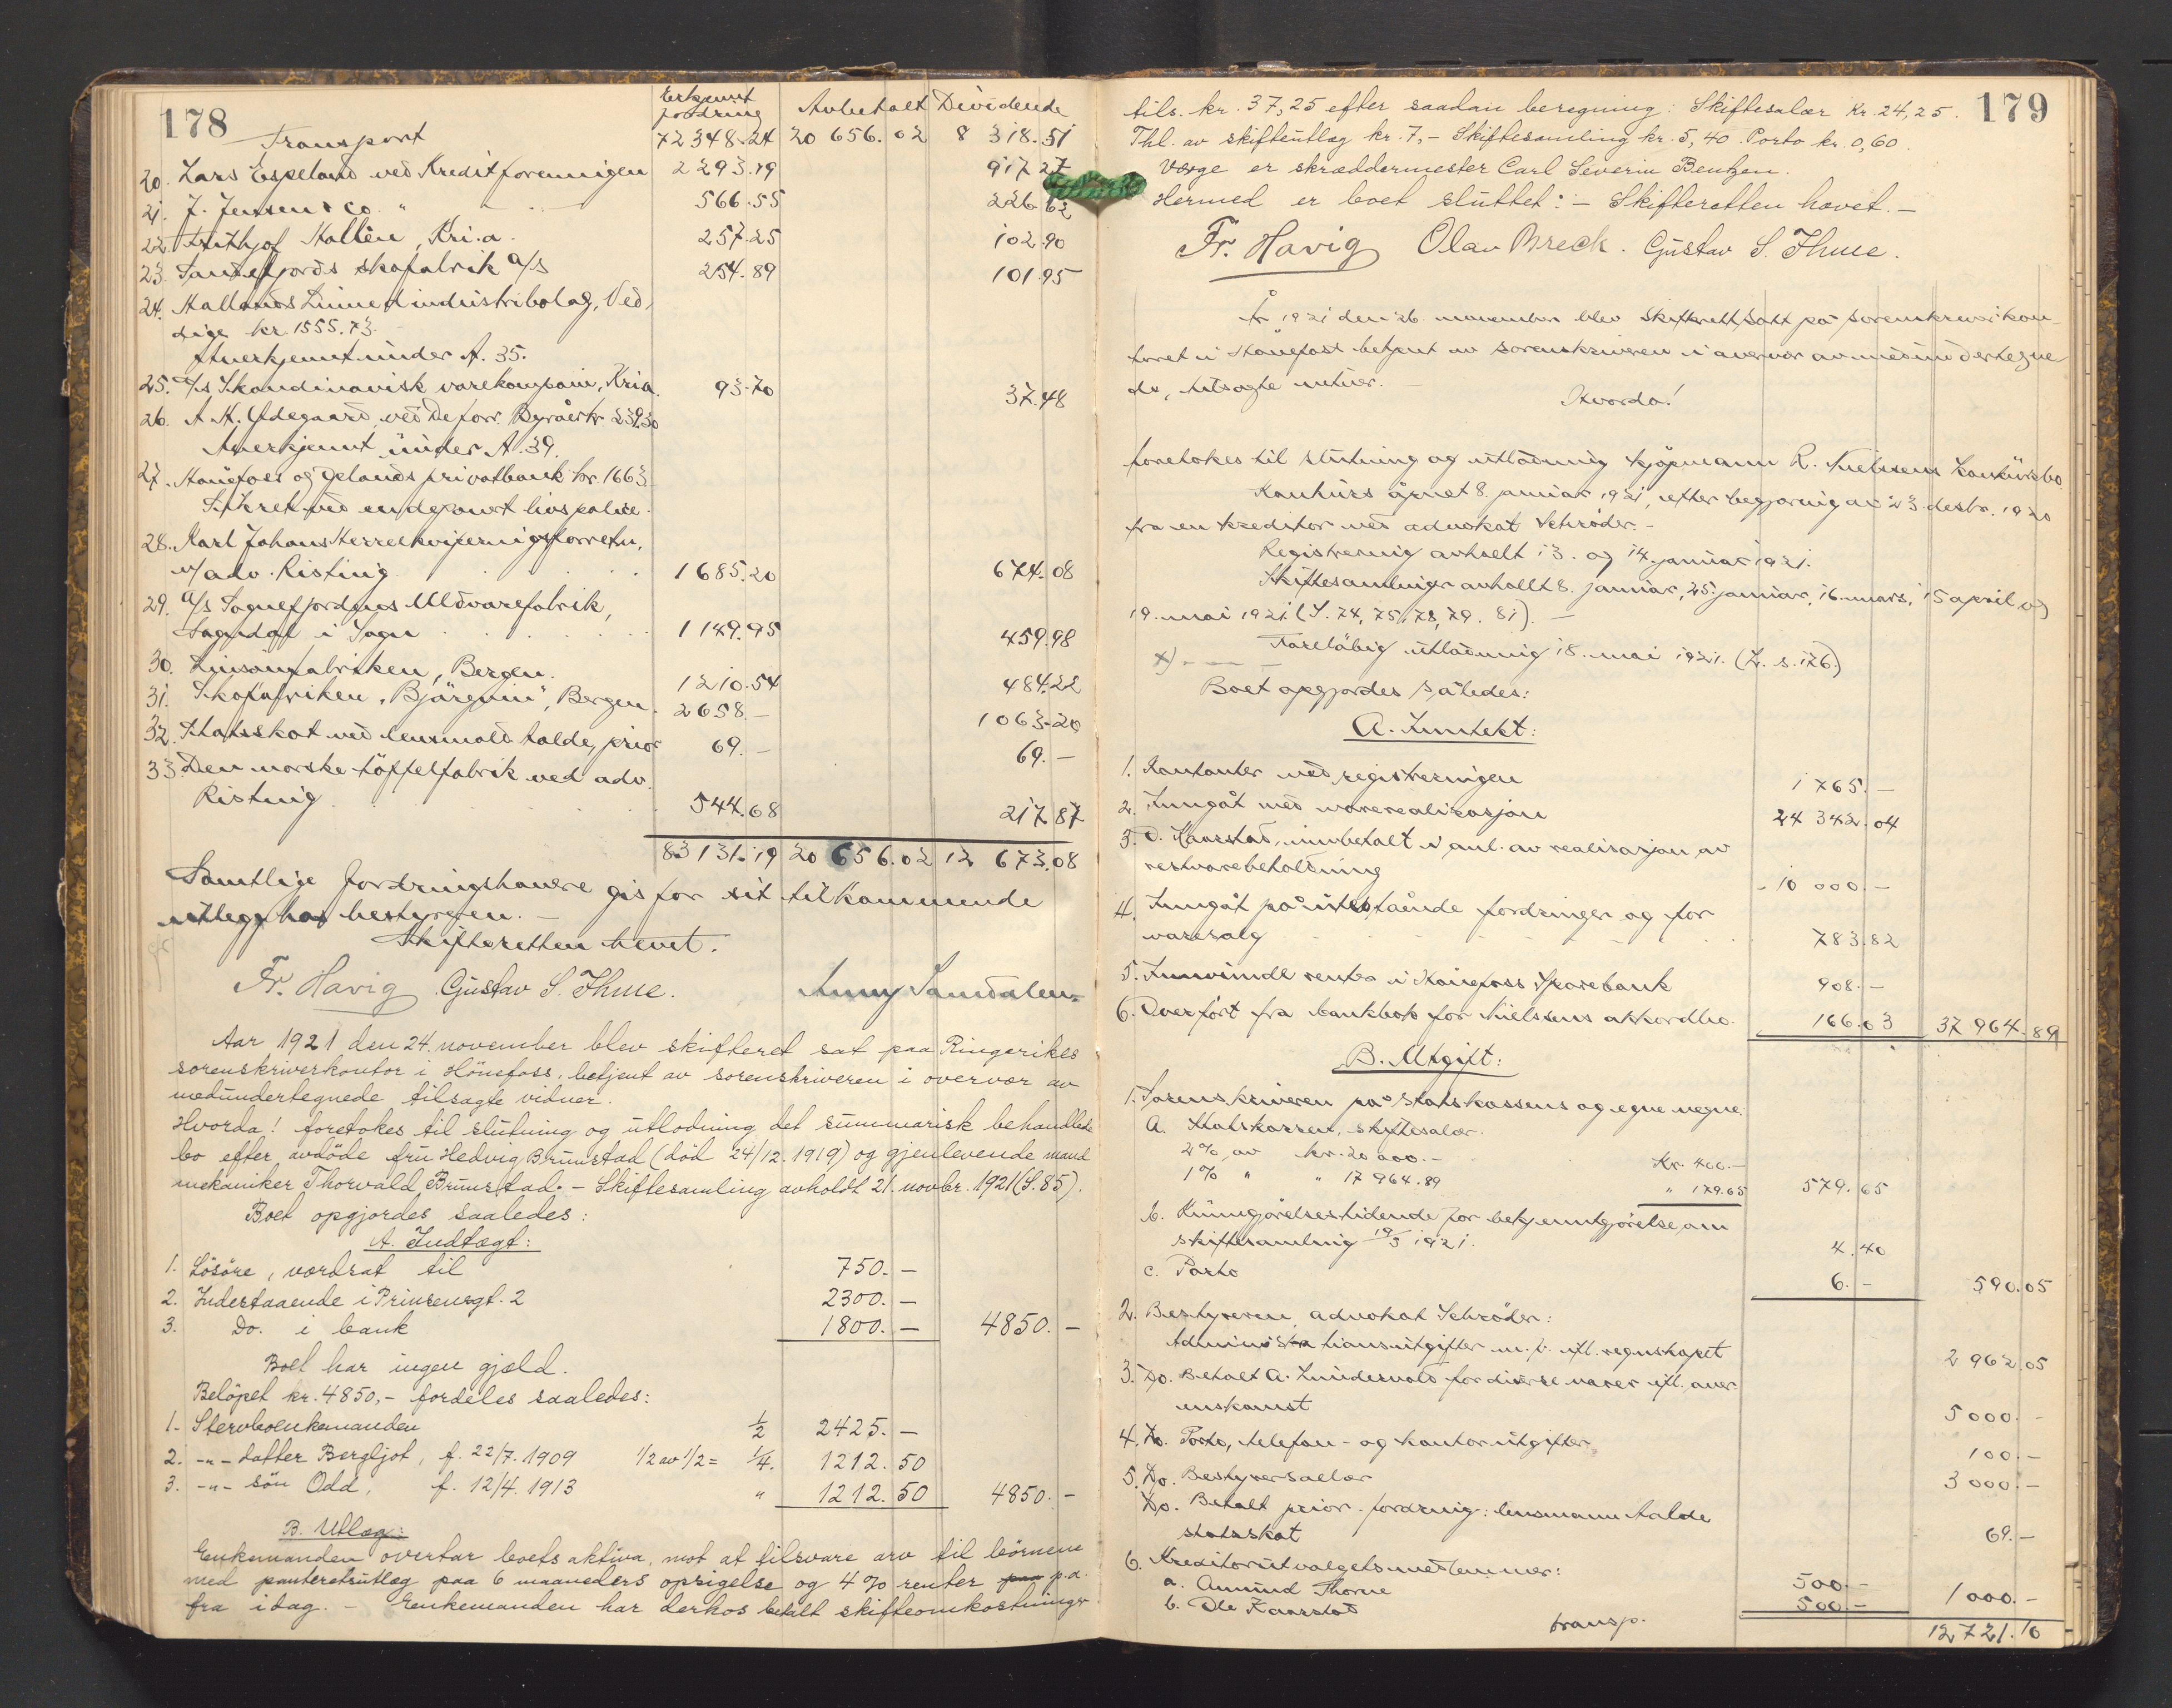 178
Erkjent
fordring Avbetalt Dividende
Transport 72 348.24 20 656.02 8 318.51
20. Lars Espeland ved Kreditforeningen 2 293.19 917.27
21. J. Jensen & Co. " 566.55 226.62
22. Frithjof Hallén, Kri.a. 257.25 102.90
23. Sandefjords skofabrik A/S 254.89 101.95
24. Hallands Linneindustribolag, Ved-
dige kr. 1555.73.
Anerkjent under A. 35.
25. A/s Skandinavisk varekompani, Kria. 93.70 37.48
26. A. H. Ødegaard, ved De forr. Byråer kr. 239.30
Anerkjennt under A. 39.
27. Hønefoss og Oplands privatbank kr. 1663.-
Sikret ved endeponert livspolice.
28. Karl Johans Herreekviperingsforretn.
v/ adv. Risting 1 685.20 674.08
29. A/s Sognefjordnes Uldvarefabrik,
Sogndal i Sogn 1 149.95 459.98
30. Linsömfabriken, Bergen. 1 210.54 484.22
31. Skofabriken "Bjørgvin", Bergen. 2 658.- 1 063.20
32. Statsskat ved lensmand Aalde, prior 69.- 69.-
33. Den norske töffelfabrik ved adv.
Risting 544.68 217.87
83 131.19 20 656.02 12 673.08
Samtlige fordringshavere gis for sit tilkommende
utlegg hos bestyreren. -
Skifteretten hevet.
Fr. Havig Gustav S. Thme. Anny Sandalen
Aar 1921 den 24. november blev skifteret sat paa Ringerikes
sorenskriverkontor i Hönefoss, betjent av sorenskriveren i overvær av
medundertegnede tilsagte vidner.
Hvorda! foretokes til slutning og utlodning det summarisk behandlede
bo efter avdöde fru Hedvig Brunstad (död 24/12. 1919) og gjenlevende mand
mekaniker Thorvald Brunstad. - Skiftesamling avholdt 21. novbr. 1921 (S. 85).
Boet opgjordes saaledes:
A. Indtægt:
1. Lösöre, værdsat til 750.-
2. Indestaaende i Prinsensgt. 2 2300.-
3. Do. i bank 1800.- 4850.-
Boet har ingen gjæld.
Belöpet kr. 4850,- fordeles saaledes:
1. Stervboenkemanden 1/2 2425.-
2. -"- datter Bergljot, f. 22/7. 1909 1/2 av 1/2 = 1/4. 1212.50
3. -"- sön Odd, f. 12/4. 1913 " 1212.50 4850.-
B. Utlæg:
Enkemanden overtar boets aktiva, mot at tilsvare arv til börnene
med panteretsutlæg paa 6 maaneders opsigelse og 4 % renter paa p.a.
fra idag. - Enkemanden har derhos betalt skifteomkostninger
179
tils. kr. 37,25 efter saadan beregning: Skiftesalær kr. 24,25.
Thl. av skifteutlæg kr. 7,- Skiftesamling kr. 5,40 Porto kr. 0,60.
Verge er skræddermester Carl Severin Bentzen.
Hermed er boet sluttet: - Skifteretten hævet. -
Fr. Havig Olav Breck. Gustav S. Thme.
År 1921 den 26. november blev skifterett satt på sorenskriverkon-
toret i Hönefoss betjent av sorenskriveren i overvær av medundertegne-
de, tilsagte vitner. -
Hvorda!
foretokes til slutning og utlodning kjöpmann R. Nielsens konkursbo.
Konkurs åpnet 8. januar 1921, efter begjæring av 23. desbr. 1920
fra en kreditor ved advokat Schröder. -
Registrering avholdt 13. og 14. januar 1921.
Skiftesamlinger avholdt 8. januar, 25. januar, 16. mars, 15 april og
19. mai 1921. (S. 74, 75, 78, 79. 81). -
x) - - - Foreløbig utlodning 18. mai 1921. (L. s. 176.)
Boet opgjordes således:
A. Inntekt:
1. Kontanter ved registreringen 1 765.-
2. Inngåt ved varerealisasjon 24 342.04
3. O. Kaarstad, innbetalt i anl. av realisasjon av
restvarebeholdning - 10 000.-
4. Inngåt på utestående fordringer og for
varesalg 783.82
5. Innvundt renter i Hönefoss Sparebank 908.-
6. Overfört fra bankbok for Nielsens akkordbo. 166.03 37 964.89
B. Utgift:
1. Sorenskriveren på statskassens og egne vegne:
a. Statskassen, skiftesalær.
2% av kr. 20 000.- Kr. 400.-
1% " " 17 964.89 " 179.65 579.65
b. Kunngjörelsestidende for bekjenntgjörelse om
skiftesamling 19/5 1921. 4.40
c. Porto 6.- 590.05
2. Bestyreren, advokat Schröder:
Administrationsutgifter m. v. ifl. regnskapet 2 962.05
3. Do. Betalt A. Lindesvold for diverse varer ifl. over-
enskomst 5 000.-
4. Do. Porto, telefon- og kontorutgifter 100.-
5. Do. Bestyrersallær 3 000.-
Do. Betalt prior. fordring: lensmann Aalde
statsskat 69.-
6. Kreditorutvalgets medlemmer:
a. Amund Thorne 500.-
b. Ole Kaarstad 500.- 1 000.-
transp. 12 721.10